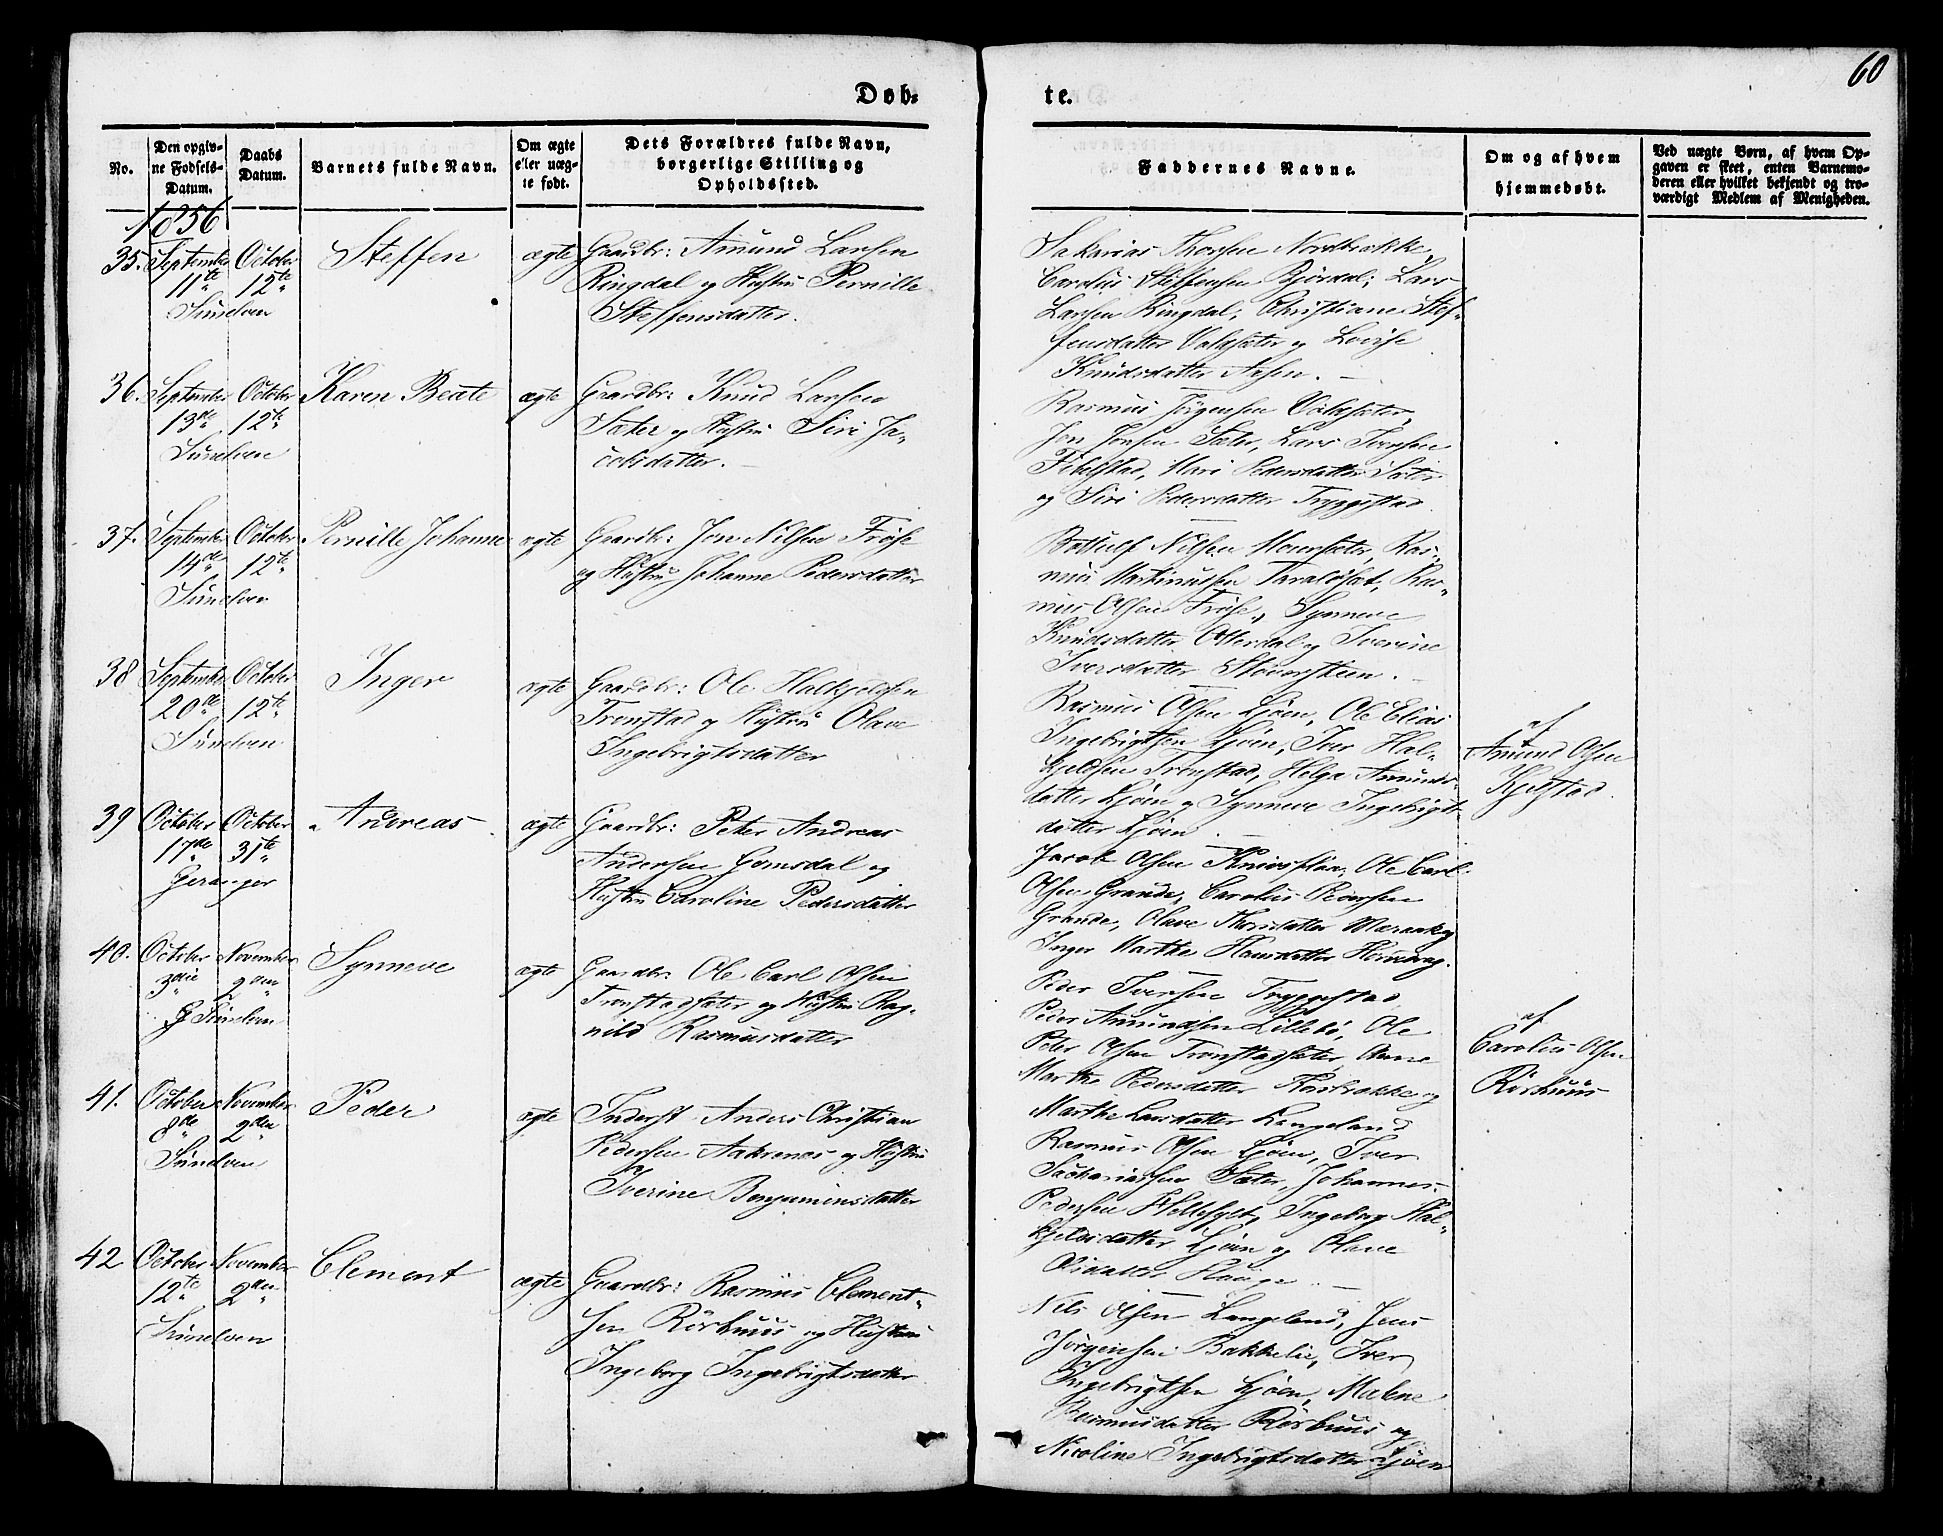 60
Døb-
te.
No.
Den opgiv-
ne Fødsels-
Datum.
Daabs
Datum.
Barnets fulde Navn.
Om ægte
eller uæg-
te født.
Dets Forældres fulde Navn,
borgerlige Stilling og
Opholdssted.
Faddernes Navne.
Om og af hvem
hjemmedøbt.
Ved uægte Børn, af hvem Op-
gaven er skeet, enten Barnemo-
deren eller hvilket bekjendt og tro-
værdigt Medlem af Menigheden.
1856
35. September 11te Sunelven
October 12te
Steffen
ægte
Gaardbr: Amund Larsen
Ringdal og Hustru Pernille
Steffensdatter.
Sakarias Thorsen Nordbakke,
Carolus Steffensen Bjørdal, Lars
Larsen Ringdal, Christiane Stef-
fensdatter Valdsæter og Lovise
Knudsdatter Aasen.
36. September 13de Sunelven
October 12te
Karen Beate
ægte
Gaardbr: Knud Larsen
Sæter og Hustru Siri Ja-
cobsdatter.
Rasmus Jørgensen Valdsæter,
Jon Jonsen Sæter, Lars Iversen
Fibelstad, Mari Pedersdatter Sæter
og Siri Pedersdatter Tryggestad.
37. September 14de Sunelven
October 12te
Pernille Johanne
ægte
Gaardbr: Jon Nilsen Frøse
og Hustru Johanne Pedersdatter
Bottulf Nilsen Moursæter, Ras-
mus Martinussen Taraldset, Ras-
mus Olsen Frøse, Synneve
Knudsdatter Otterdal og Iverine
Iversdatter
38 September 20de Sunelven
October 12te
Inger
ægte
Gaardbr: Ole Halkjeldsen
Tronstad og Hustru Olave
Ingebrigtsdatter
Rasmus Olsen Ljøen, Ole Elias
Ingebrigtsen Ljøen, Iver Hal-
kjeldsen Tronstad, Helga Amunds-
datter Ljøen og Synneve Ingebrigts-
datter Ljøen
af
Amund Olsen
Kjelstad.
39 October 17de Geranger
October 31te
Andreas
ægte
Gaardbr: Peter Andreas
Andersen Gomsdal og
Hustru Caroline Pedersdatter
Jacob Olsen Knivsflaa, Ole Carl
Olsen Grande, Carolus Pedersen
Grande, Olave Thorsdatter Meraak og
Inger Marthe Hansdatter Homvag.
40. October 3die Sunelven
November 2den
Synneve
ægte
Gaardbr: Ole Carl Olsen
Tronstadsæter og Hustru Rag-
nild Rasmusdatter
Peder Iversen Tryggestad,
Peder Amundsen Lillebø, Ole
Peter Olsen Tronstadsæter, Anne
Marthe Pedersdatter og
Marthe Larsdatter Langeland
af
Carolus Olsen
Rørhuus
41. October 8de Sunelven
November 2den
Peder
ægte
Inderst Anders Christian
Pedersen Aakrenæs og Hustru
Iverine Benjaminsdatter
Rasmus Olsen Ljøen, Iver
Sachariassen Sæter, Johannes
Pedersen Hellesylt, Ingeborg Hal-
kjeldsdatter Ljøen og Olave
Olsdatter Hauge.
42 October 12te Sunelven
November 2den
Clement
ægte
Gaardbr: Rasmus Clement-
sen Rørhuus og Hustru
Ingeborg Ingebrigtsdatter
Nils Olsen Langeland, Jens
Jørgensen Bakkelie, Iver
Ingebrigtsen Ljøen, Malene
Rasmusdatter Rørhuus og
Nicoline Ingebrigtsdatter Ljøen